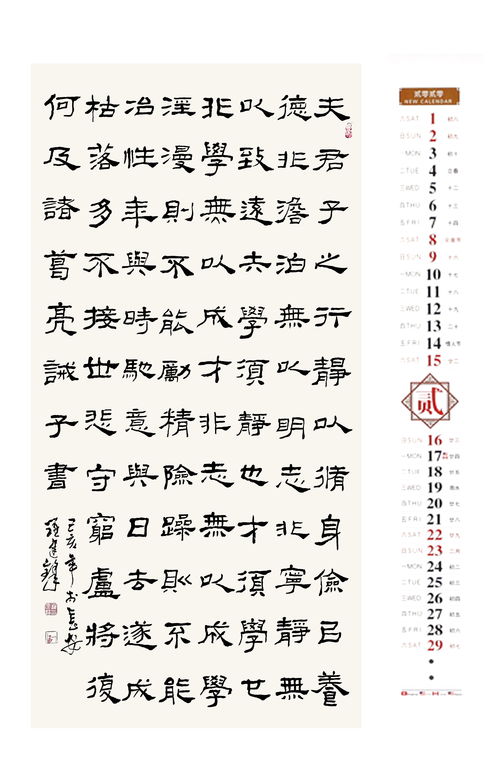 夫君子之行靜以脩身儉㠯養
德非澹泊無以明志非寧靜無
以致遠夫學須靜也才須學也
非學無以成才非志無以成學
淫漫則不能勵精險躁則不能
冶性年與時馳意與日去遂成
枯落多不接世悲守窮盧將復
何及諸葛亮誡子書
己亥年於長安
贰零贰零
NEW CALENDAR
六 SAT 1 初八
日 SUN 2 初九
一 MON 3 初十
二 TUE 4 立春
三 WED 5 十二
四 THU 6 十三
五 FRI 7 十四
六 SAT 8 元宵节
日 SUN 9 十六
一 MON 10 十七
二 TUE 11 十八
三 WED 12 十九
四 THU 13 二十
五 FRI 14 情人节
六 SAT 15 廿二
贰
日 SUN 16 廿三
一 MON 17 廿四
二 TUE 18 廿五
三 WED 19 雨水
四 THU 20 廿七
五 FRI 21 廿八
六 SAT 22 廿九
日 SUN 23 二月
一 MON 24 初二
二 TUE 25 初三
三 WED 26 初四
四 THU 27 初五
五 FRI 28 初六
六 SAT 29 初七